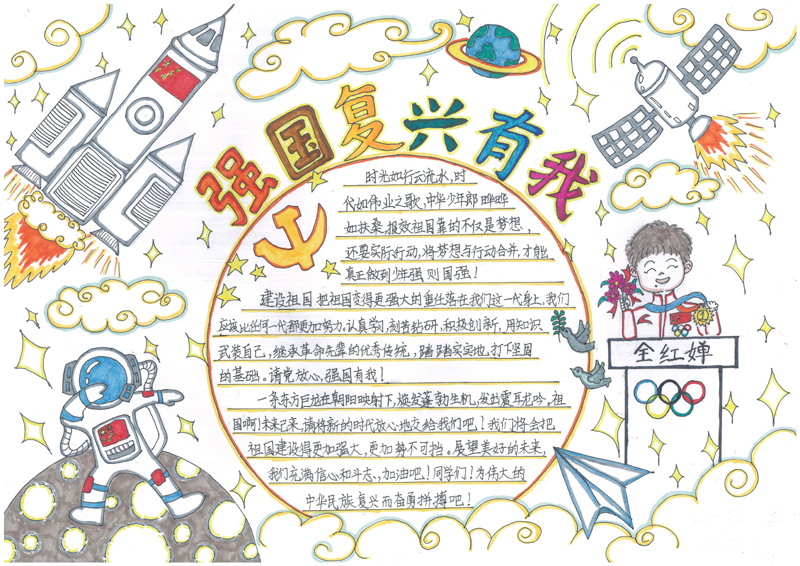 强国复兴有我
时光如行云流水,时
代如伟业之歌,中华少年郎 晔晔
如扶桑,报效祖国靠的不仅是梦想,
还要实际行动,将梦想与行动合并,才能
真正做到少年强 则国强!
建设祖国 把祖国变得更强大的重任落在我们这一代身上,我们
应该比任何一代都更加努力,认真学习,刻苦钻研,积极创新,用知识
武装自己,继承革命先辈的优秀传统,踏踏实实地,打下坚固
的基础。请党放心,强国有我!
一条东方巨龙在朝阳映射下,焕发蓬勃生机,发出震耳龙吟。祖
国啊!未来已来,请将新的时代放心地交给我们吧!我们将会把
祖国建设得更加强大,更加势不可挡。展望美好的未来,
我们充满信心和斗志,加油吧!同学们!为伟大的
中华民族复兴而奋勇拼搏吧!
全红婵